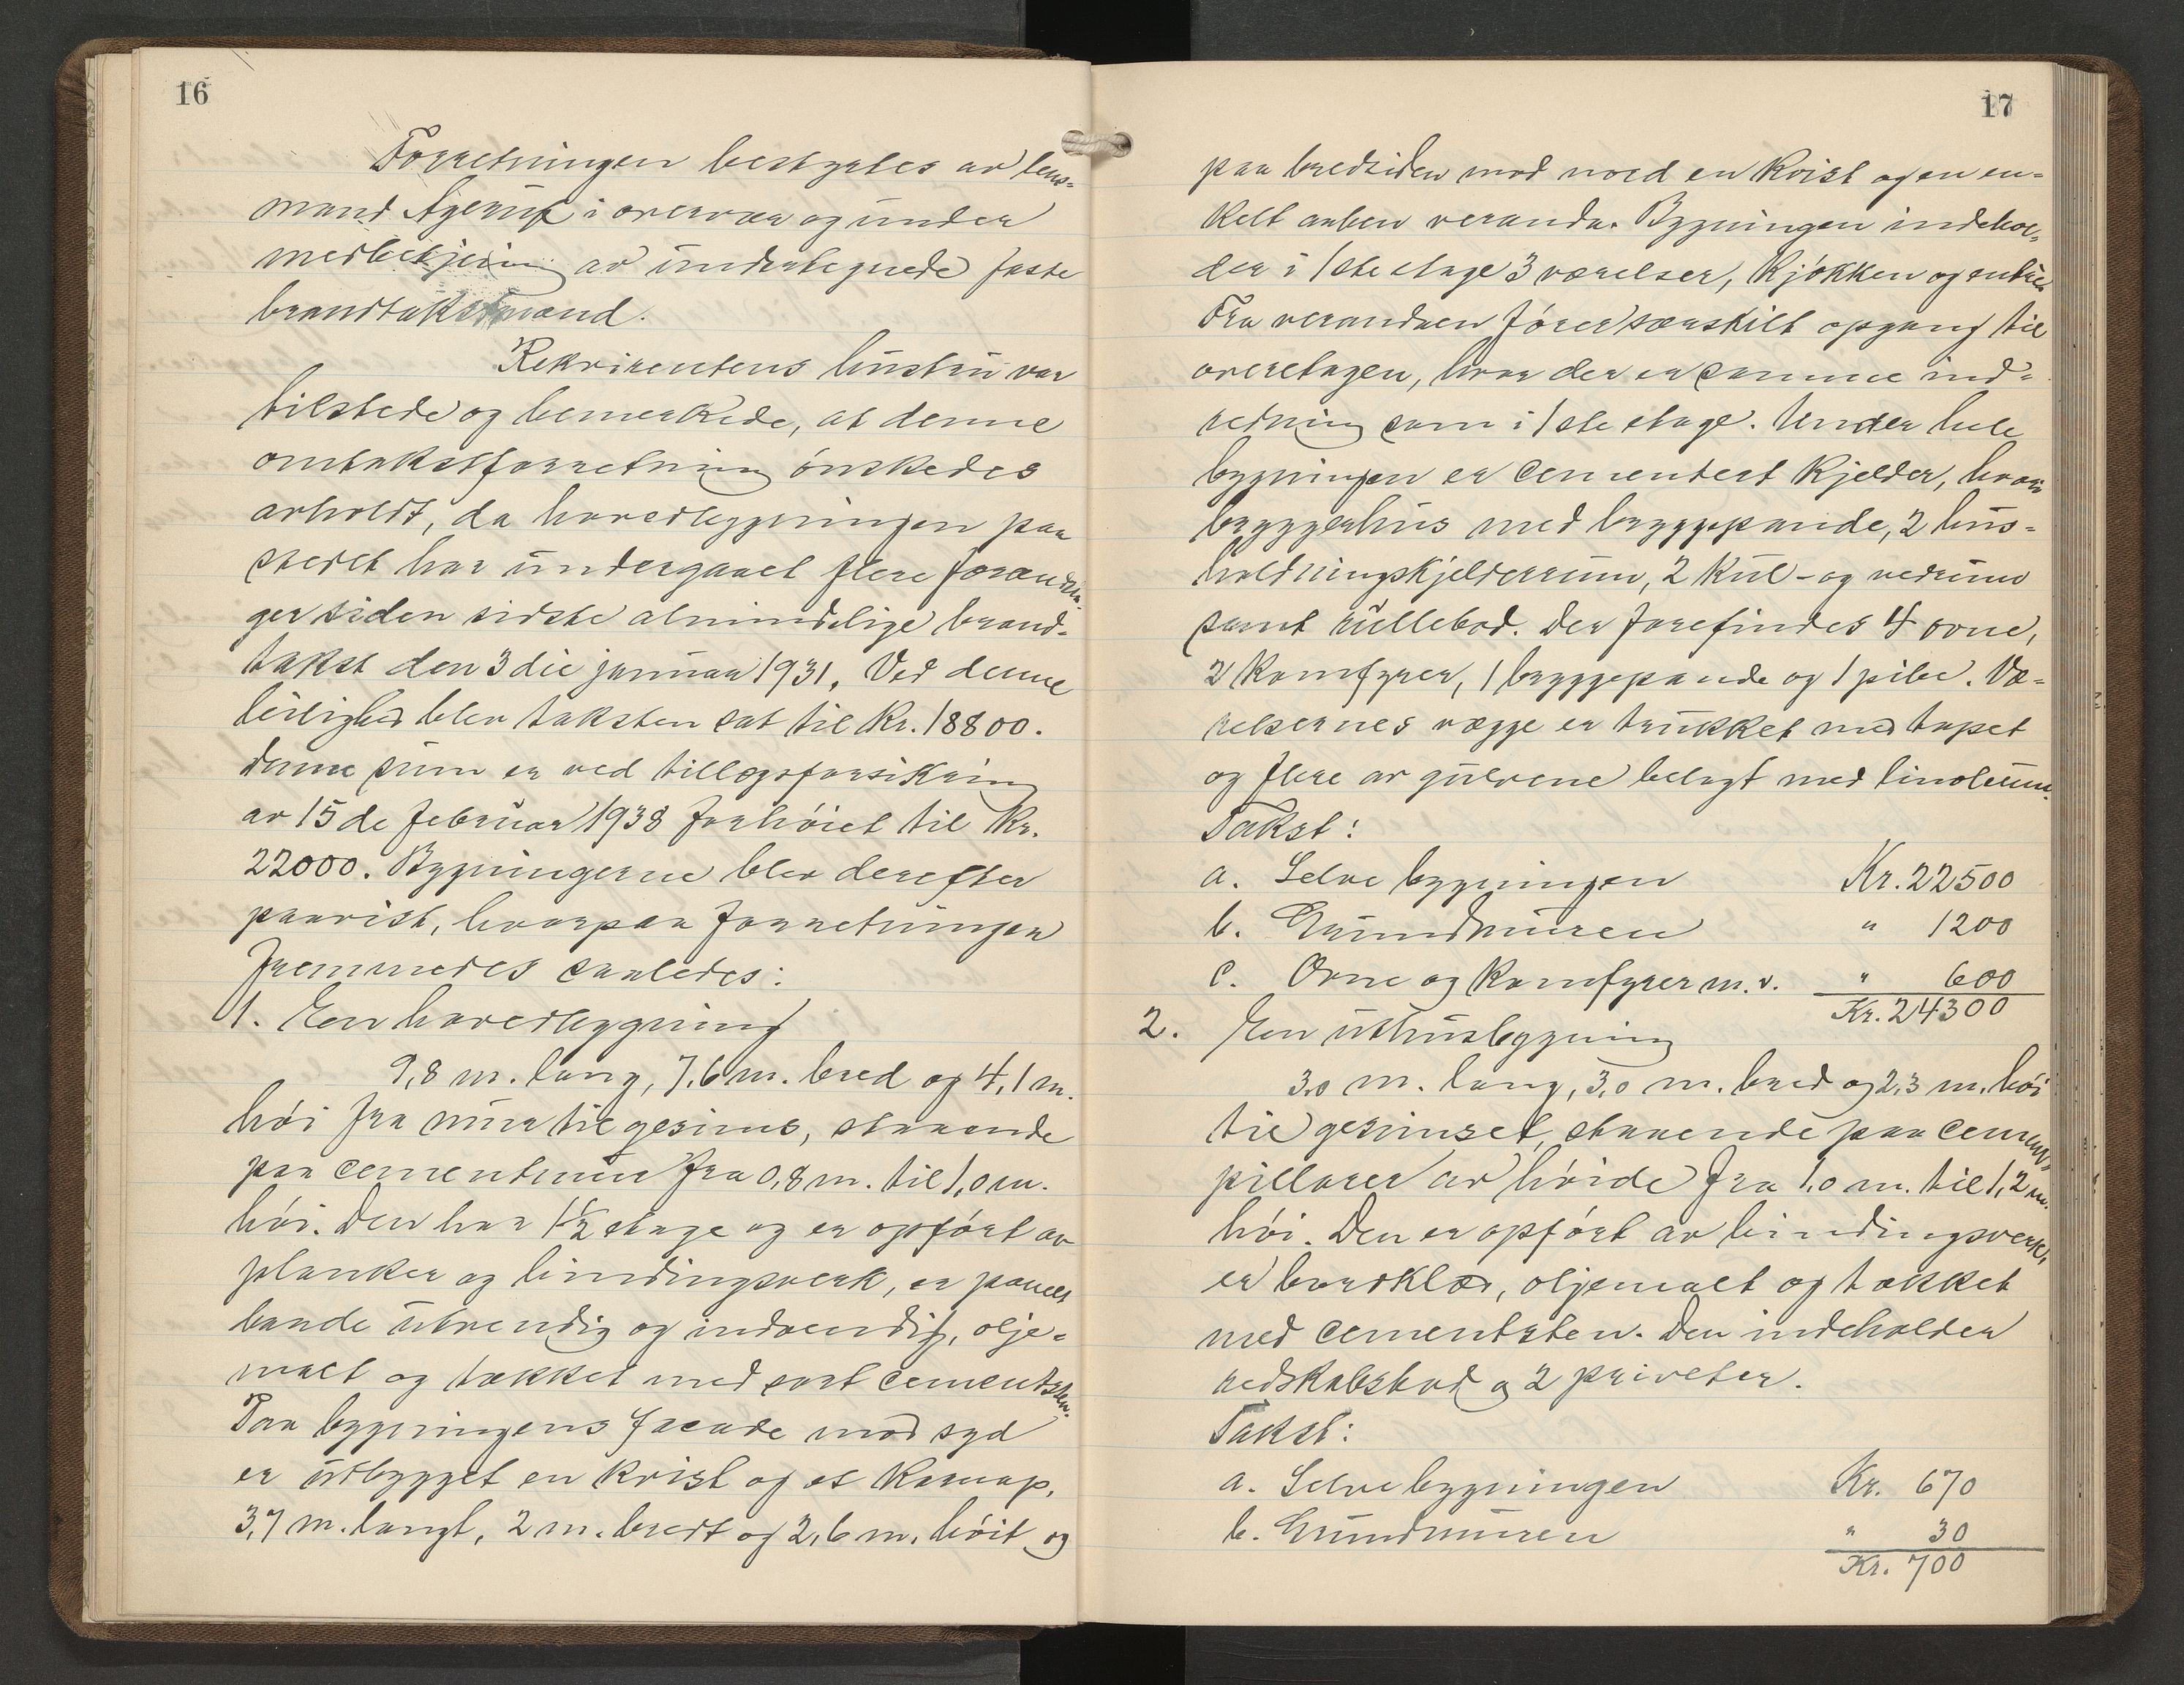 16
Forretningen bestyrtes av lens-
mand Agerup i overvær og under
medbetjening av undertegnede faste
brandtakstmænd.
Rekvirentens hustru var
tilstede og bemerkede, at denne
omtakstforretning ønskedes
avholdt, da hovedbygningen paa
stedet har undergaaet flere forandrin-
ger siden sidste almindelige brand-
takst den 3die januar 1931. Ved denne
leilighed blev taksten sat til Kr. 18800.
Denne sum er ved tillægsforsikring
av 15de februar 1938 forhøiet til Kr.
22000. Bygningerne blev derefter
paavist, hvorpaa forretningen
fremmedes saaledes:
1. En hovedbygning
9,8 m. lang, 7,6 m. bred og 4,1 m.
høi fra mur til gesims, staaende
paa cementmur fra 0,8 m. til 1,0 m.
høi. Den har 1½ etage og er opført av
planker og bindingsverk, er panelt
baade utvendig og indvendig, olje-
malt og tækket med sort cementsten.
Paa bygningens facade mod syd
er utbygget en kvist og et karnap,
3,7 m. langt, 2 m. bredt og 2,6 m. høit og
17
paa bredsiden mod nord en kvist og en en-
kelt aaben veranda. Bygningen indehol-
der i 1ste etage 3 værelser, kjøkken og entre.
Fra verandaen fører særskilt opgang til
overetagen, hvor der er samme ind-
redning som i 1ste etage. Under hele
bygningen er cementert kjelder, hvori
bryggerhus med bryggepande, 2 hus-
holdningskjelderrum, 2 kul- og vedrum
samt rullebod. Der forefindes 4 ovne,
2 komfyrer, 1 bryggepande og 1 pibe. Væ-
relsernes vægge er trukket med tapet
og flere av gulvene belagt med linoleum.
Takst:
a. Selve bygningen Kr. 22500
b. Grundmuren " 1200
c. Ovne og komfyrer m.v. " 600
Kr. 24300
2. En uthusbygning
3,0 m. lang, 3,0 m. bred og 2,3 m. høi
til gesimset, staaende paa cement-
pillarer av høide fra 1,0 m. til 1,2 m.
høi. Den er opført av bindingsverk,
er bordklæd, oljemalt og tækket
med cementsten. Den indeholder
redskabsbod og 2 priveter.
Takst:
a. Selve bygningen Kr. 670
b. Grundmuren " 30
Kr. 700